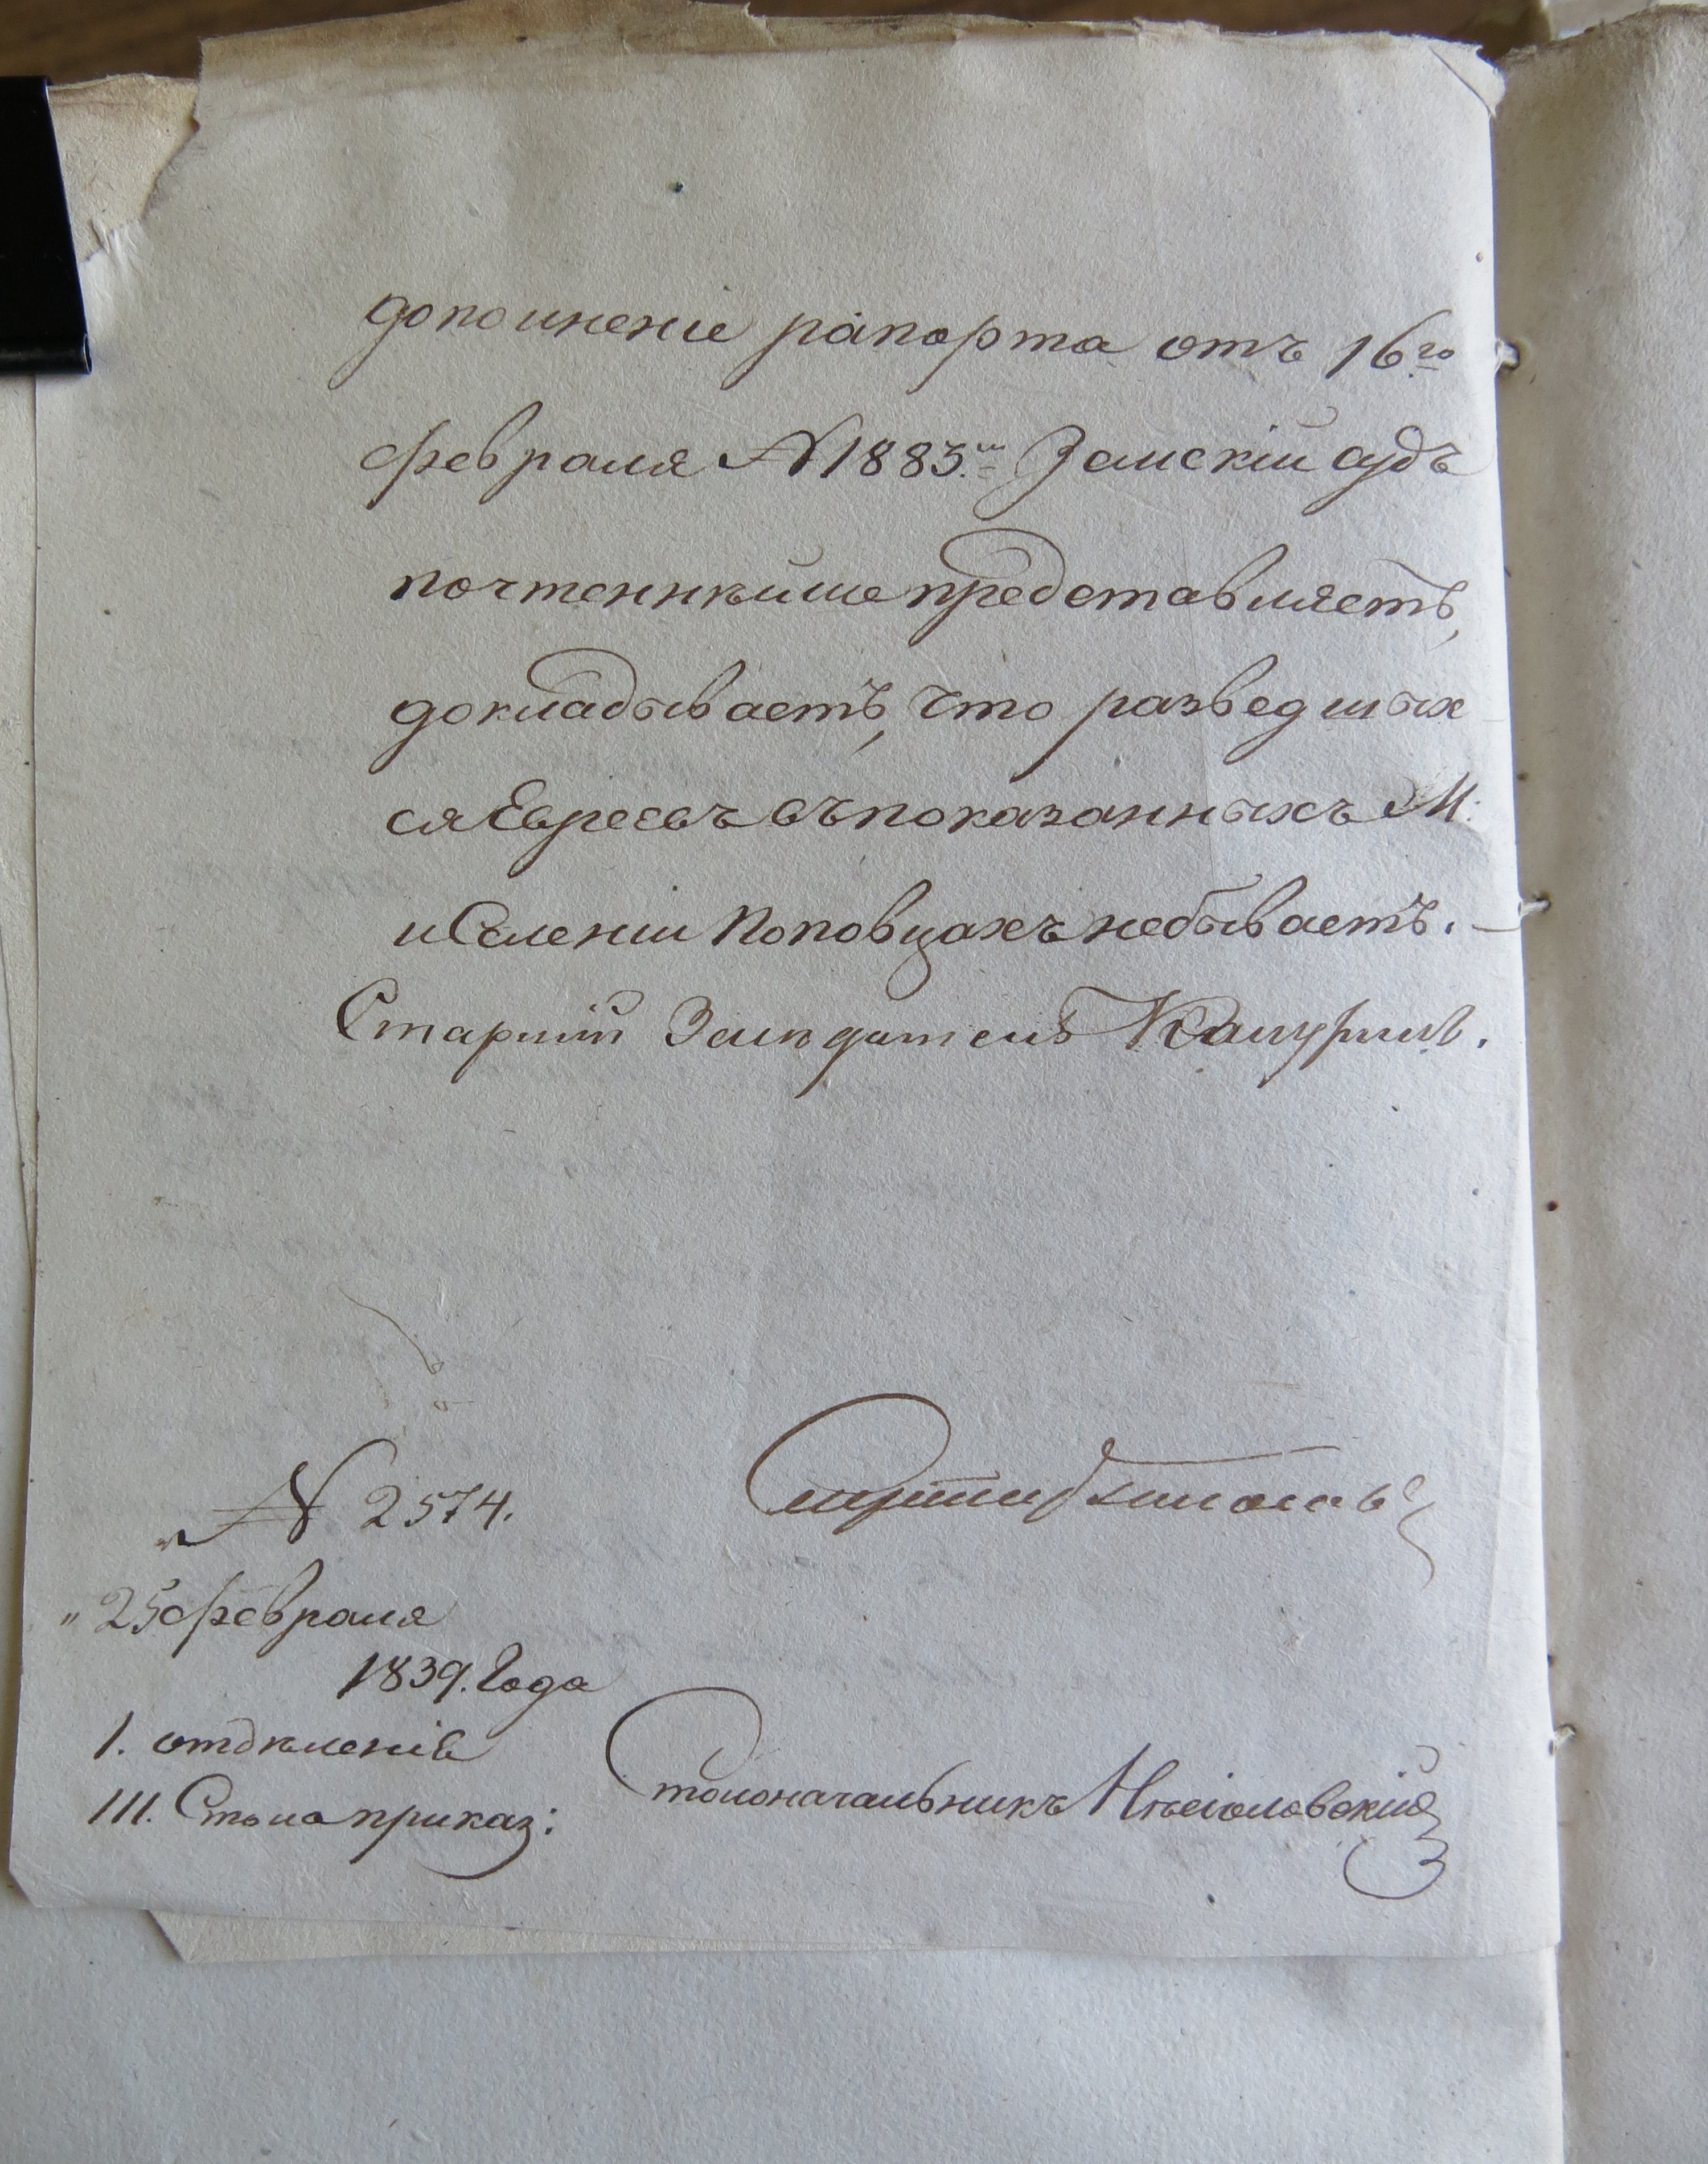 дополненіе рапорта отъ 16го
февраля № 1883м Земскій судъ
почтеннѣйше представляетъ,
докладываетъ, что разведшихъ
ся Евреевъ въ показанныхъ М:
и Селеніи Поповцахъ небываетъ. —
Старшій Засѣдатель
№ 2574.
" 25 февраля
1839. Года
1. отдѣленіе
III. Стола приказ:
Столоначальникъ